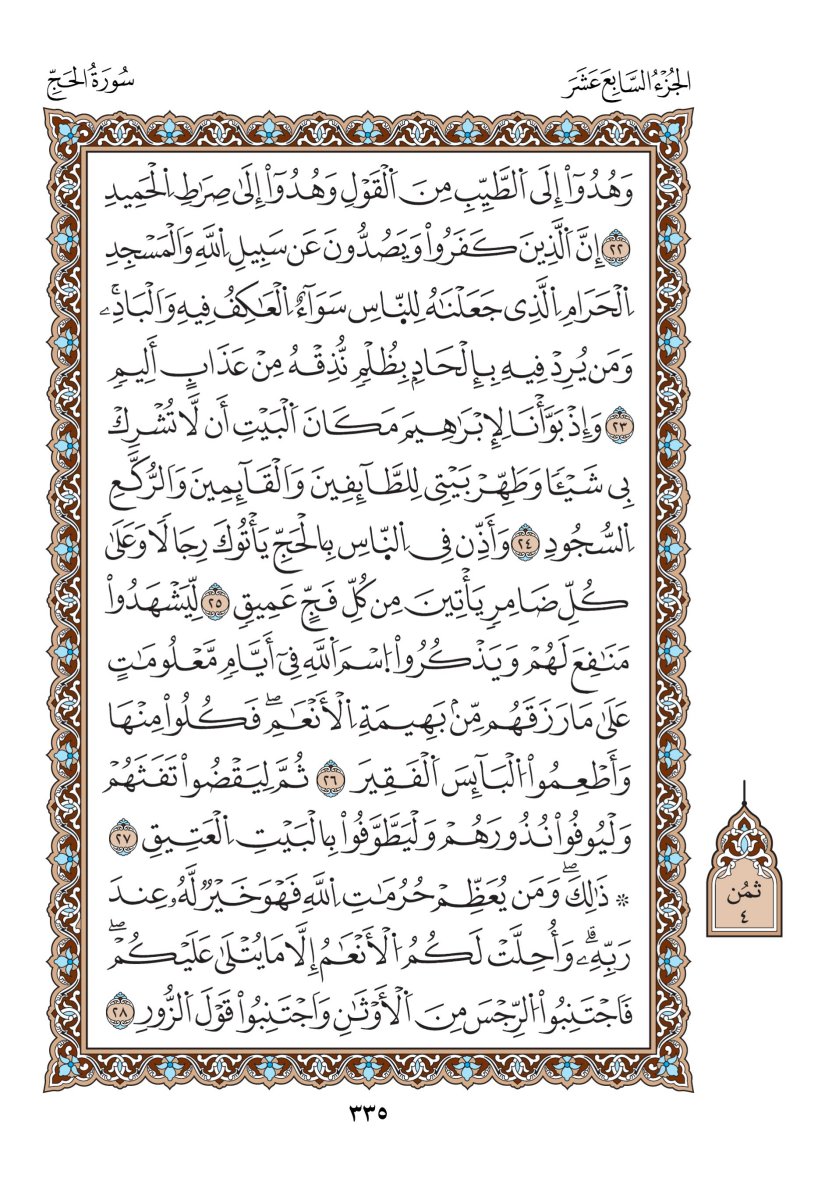 الجُزْءُ السَّابِعَ عَشَرَ
سُورَةُ الحَجِّ
وَهُدُوٓاْ إِلَى اَ۬لطَّيِّبِ مِنَ اَ۬لْقَوْلِ وَهُدُوٓاْ إِلَىٰ صِرَٰطِ اِ۬لْحَمِيدِ
٢٢ إِنَّ اَ۬لَّذِينَ كَفَرُواْ وَيَصُدُّونَ عَن سَبِيلِ اِ۬للَّهِ وَالْمَسْجِدِ
اِ۬لْحَرَامِ اِ۬لَّذِى جَعَلْنَٰهُ لِلنَّاسِ سَوَآءٌ اِ۬لْعَٰكِفُ فِيهِ وَالْبَادِۦ
وَمَن يُرِدْ فِيهِ بِإِلْحَادِۢ بِظُلْمٖ نُّذِقْهُ مِنْ عَذَابٍ أَلِيمٖ
٢٣ وَإِذْ بَوَّأْنَا لِإِبْرَٰهِيمَ مَكَانَ اَ۬لْبَيْتِ أَن لَّا تُشْرِكْ
بِى شَيْـٔٗا وَطَهِّرْ بَيْتِى لِلطَّآئِفِينَ وَالْقَآئِمِينَ وَالرُّكَّعِ
اِ۬لسُّجُودِ ٢٤ وَأَذِّن فِى اِ۬لنَّاسِ بِالْحَجِّ يَأْتُوكَ رِجَالٗا وَعَلَىٰ
كُلِّ ضَامِرٖ يَأْتِينَ مِن كُلِّ فَجٍّ عَمِيقٖ ٢٥ لِّيَشْهَدُواْ
مَنَٰفِعَ لَهُمْ وَيَذْكُرُواْ اُ۪سْمَ اَ۬للَّهِ فِىٓ أَيَّامٖ مَّعْلُومَٰتٍ
عَلَىٰ مَا رَزَقَهُم مِّنۢ بَهِيمَةِ اِ۬لْأَنْعَٰمِۖ فَكُلُواْ مِنْهَا
وَأَطْعِمُواْ اُ۬لْبَآئِسَ اَ۬لْفَقِيرَ ٢٦ ثُمَّ لِيَقْضُواْ تَفَثَهُمْ
وَلْيُوفُواْ نُذُورَهُمْ وَلْيَطَّوَّفُواْ بِالْبَيْتِ اِ۬لْعَتِيقِ ٢٧
۞ ذَٰلِكَۖ وَمَن يُعَظِّمْ حُرُمَٰتِ اِ۬للَّهِ فَهُوَ خَيْرٞ لَّهُۥ عِندَ
رَبِّهِۦۗ وَأُحِلَّتْ لَكُمُ اُ۬لْأَنْعَٰمُ إِلَّا مَا يُتْلَىٰ عَلَيْكُمْۖ
فَاجْتَنِبُواْ اُ۬لرِّجْسَ مِنَ اَ۬لْأَوْثَٰنِ وَاجْتَنِبُواْ قَوْلَ اَ۬لزُّورِ ٢٨
ثمُن
٤
٣٣٥